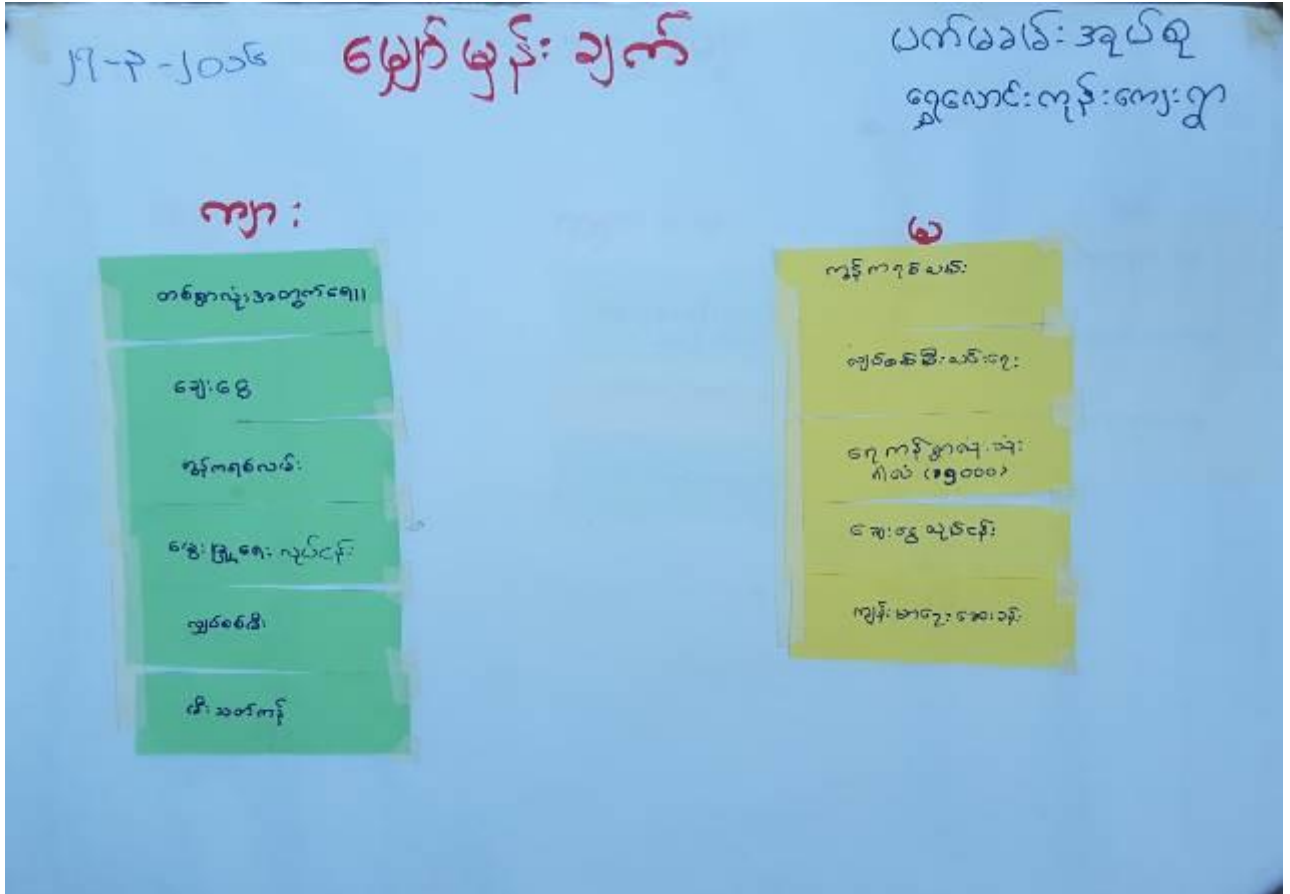 ၂၇-၃-၂၀၁၆
မျှော်မှန်းချက်
ပက်မခမ်းအုပ်စု
ရွှေလောင်းကုန်းကျေးရွာ
ကျား
တစ်ရွာလုံးအတွက်ရေ။
ချေးငွေ
ကွန်ကရစ်လမ်း
မွေးမြူရေး လုပ်ငန်း
လျှပ်စစ်မီး
မီးသတ်ကန်
မ
ကွန်ကရစ်လမ်း
လျှပ်စစ်မီးလင်းရေး
ရေကန်ရွာလုံးသုံး
ဂါလံ (၁၅၀၀၀)
ချေးငွေ လုပ်ငန်း
ကျန်းမာရေးဆေးခန်း